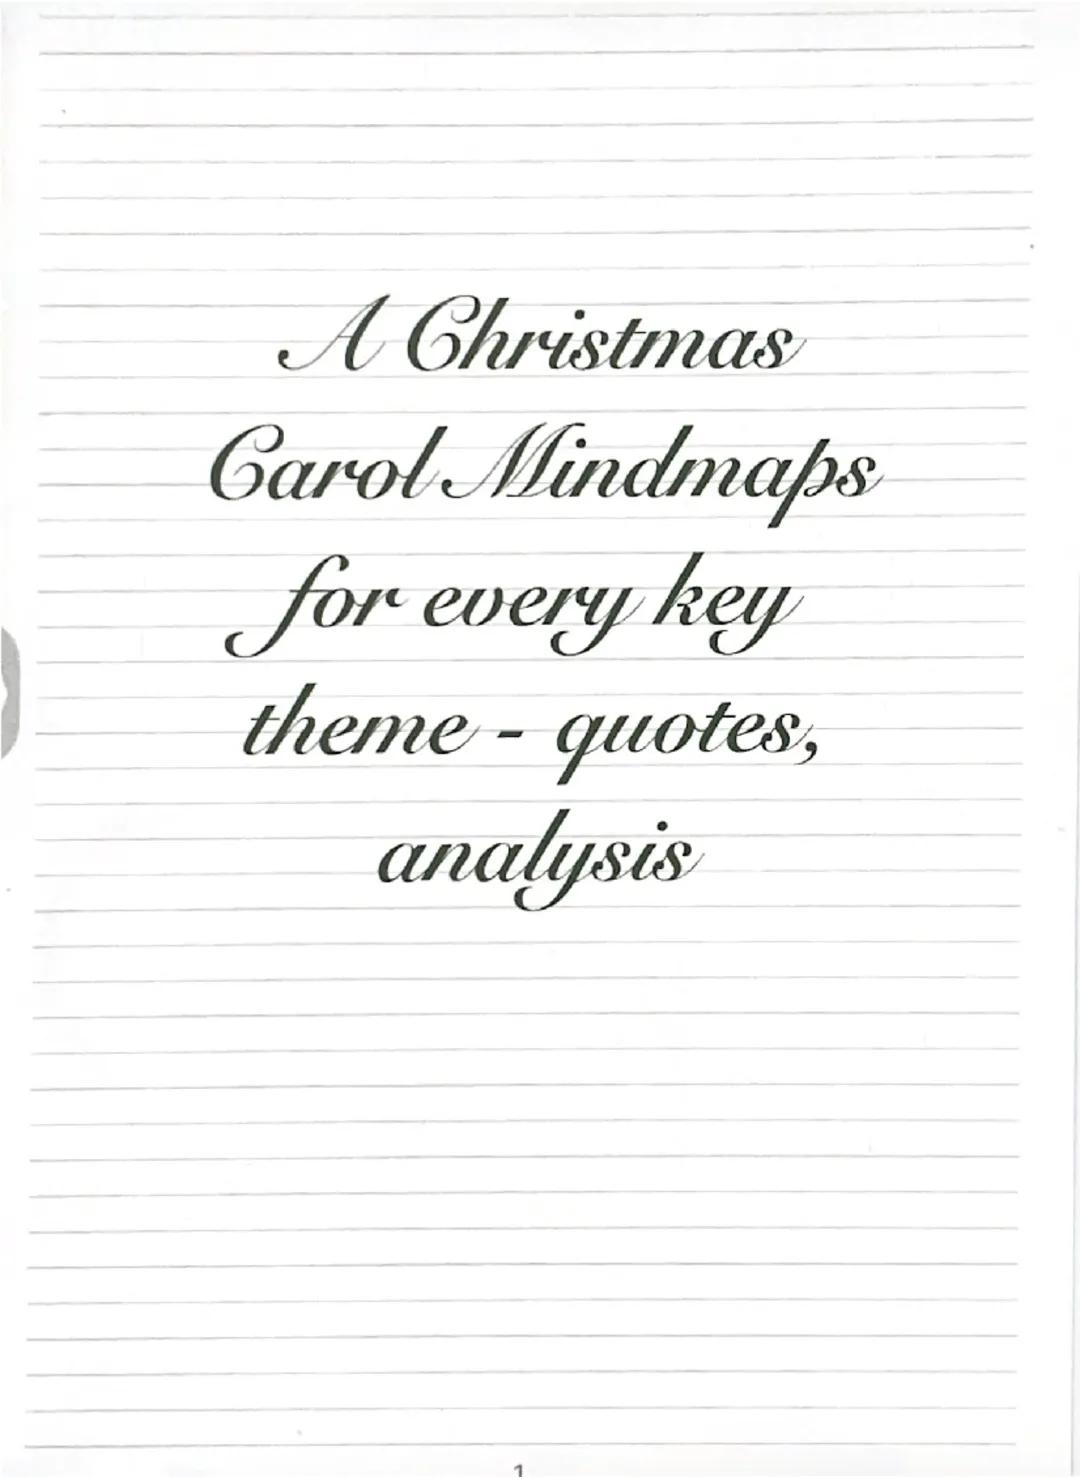 A Christmas
Carol Mindmaps
for every key
theme - quotes,
analysis
1